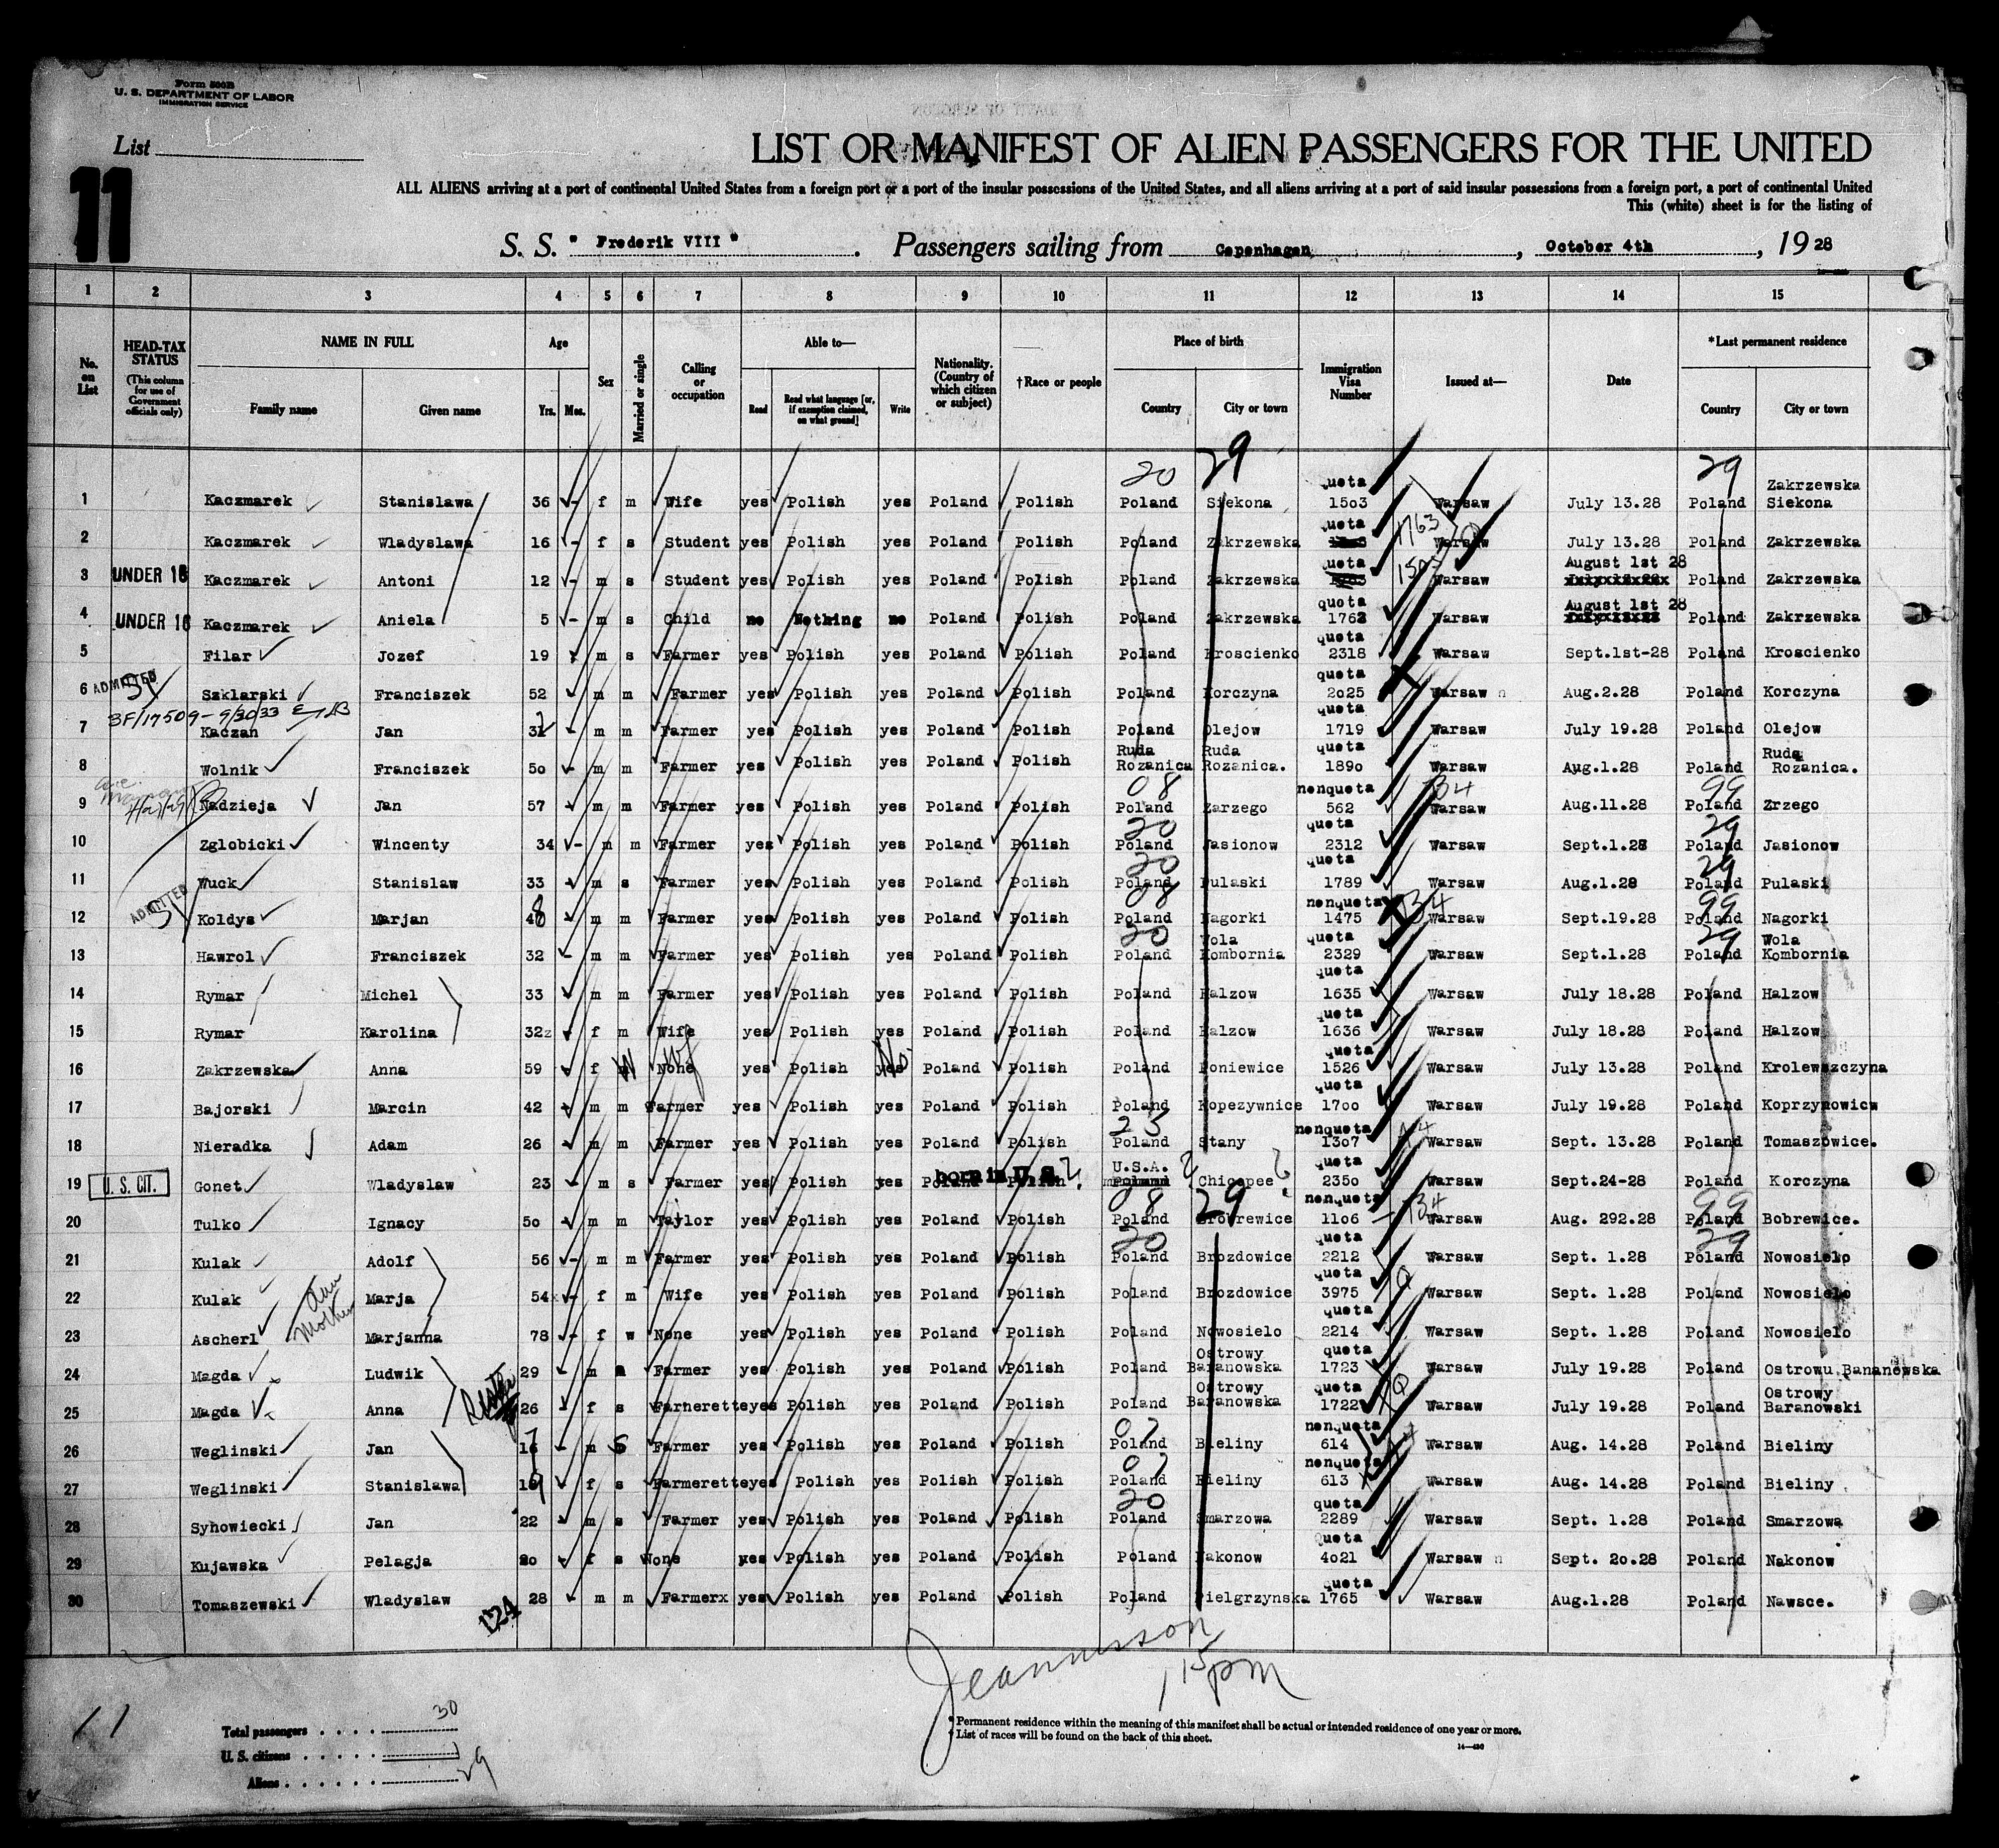 Form 500B
U. S. DEPARTMENT OF LABOR
IMMIGRATION SERVICE
List
11
LIST OR MANIFEST OF ALIEN PASSENGERS FOR THE UNITED
ALL ALIENS arriving at a port of continental United States from a foreign port or a port of the insular possessions of the United States, and all aliens arriving at a port of said insular possessions from a foreign port, a port of continental United
This (white) sheet is for the listing of
S. S. " Frederik VIII ". Passengers sailing from Copenhagen, October 4th, 1928
1 2 3 4 5 6 7 8 9 10 11 12 13 14 15
No. on List
HEAD-TAX STATUS
(This column for use of Government officials only)
NAME IN FULL
Family name Given name
Age
Yrs. Mos.
Sex
Married or single
Calling or occupation
Able to—
Read Read what language [or, if exemption claimed, on what ground] Write
Nationality. (Country of which citizen or subject)
†Race or people
Place of birth
Country City or town
Immigration Visa Number
Issued at—
Date
*Last permanent residence
Country City or town
20 29 29
1 Kaczmarek Stanislawa 36 - f m Wife yes Polish yes Poland Polish Poland Siekona quota 1503 Warsaw July 13.28 Poland Zakrzewska Siekona
2 Kaczmarek Wladyslawa 16 - f s Student yes Polish yes Poland Polish Poland Zakrzewska quota 1763 Warsaw July 13.28 Poland Zakrzewska
3 UNDER 16 Kaczmarek Antoni 12 - m s Student yes Polish yes Poland Polish Poland Zakrzewska quota Warsaw August 1st 28 Poland Zakrzewska
4 UNDER 16 Kaczmarek Aniela 5 - m s Child no Nothing no Poland Polish Poland Zakrzewska quota 1762 Warsaw August 1st 28 Poland Zakrzewska
5 Filar Jozef 19 m s Farmer yes Polish yes Poland Polish Poland Kroscienko quota 2318 Warsaw Sept.1st-28 Poland Kroscienko
6 ADMITTED Szklarski Franciszek 52 m m Farmer yes Polish yes Poland Polish Poland Korczyna quota 2025 Warsaw Aug.2.28 Poland Korczyna
3F/17509-9/3033
7 Kaczan Jan 3 m m Farmer yes Polish yes Poland Polish Poland Olejow quota 1719 Warsaw July 19.28 Poland Olejow
8 Wolnik Franciszek 50 - m m Farmer yes Polish yes Poland Polish Ruda Rozanica Ruda Rozanica. quota 1890 Warsaw Aug.1.28 Poland Ruda Rozanica.
08 B4 99
9 Nadzieja Jan 57 m m Farmer yes Polish yes Poland Polish Poland Zarzego nonquota 562 Warsaw Aug.11.28 Poland Zrzego
20 29
10 Zglobicki Wincenty 34 - m m Farmer yes Polish yes Poland Polish Poland Jasionow quota 2312 Warsaw Sept.1.28 Poland Jasionow
20 29
11 Wuck Stanislaw 33 m s Farmer yes Polish yes Poland Polish Poland Pulaski quota 1789 Warsaw Aug.1.28 Poland Pulaski
08 B4 99
12 ADMITTED Koldys Marjan 48 m m Farmer yes Polish yes Poland Polish Poland Nagorki nonquota 1475 Warsaw Sept.19.28 Poland Nagorki
20 29
13 Hawrol Franciszek 32 m m Farmer yes Polish yes Poland Polish Poland Wola Kombornia quota 2329 Warsaw Sept.1.28 Poland Wola Kombornia
14 Rymar Michel 33 m m Farmer yes Polish yes Poland Polish Poland Halzow quota 1635 Warsaw July 18.28 Poland Halzow
15 Rymar Karolina 32 f m Wife yes Polish yes Poland Polish Poland Halzow quota 1636 Warsaw July 18.28 Poland Halzow
16 Zakrzewska Anna 59 f W None yes Polish No Poland Polish Poland Poniewice quota 1526 Warsaw July 13.28 Poland Krolewszczyna
17 Bajorski Marcin 42 m m Farmer yes Polish yes Poland Polish Poland Kopezywnice quota 1700 Warsaw July 19.28 Poland Koprzynowicw
18 Nieradka Adam 26 m m Farmer yes Polish yes Poland Polish Poland Stany nonquota 1307 Warsaw Sept. 13.28 Poland Tomaszowice.
19 U. S. CIT. Gonet Wladyslaw 23 m s Farmer yes Polish yes Poland born in U. S. ? Polish U.S.A. ? Chicopee ? quota 2350 Warsaw Sept.24-28 Poland Korczyna
08 29 B4 99
20 Tulko Ignacy 50 m m Taylor yes Polish yes Poland Polish Poland Bobrewice nonquota 1106 Warsaw Aug. 292.28 Poland Bobrewice.
20 29
21 Kulak Adolf 56 - m m Farmer yes Polish yes Poland Polish Poland Brozdowice quota 2212 Warsaw Sept. 1.28 Poland Nowosielo
22 Kulak Marja 54 - f m Wife yes Polish yes Poland Polish Poland Brozdowice quota 3975 Warsaw Sept. 1.28 Poland Nowosielo
23 Ascherl mother Marjanna 78 - f w None yes Polish yes Poland Polish Poland Nowosielo quota 2214 Warsaw Sept. 1.28 Poland Nowosielo
24 Magda Ludwik 29 m Farmer yes Polish yes Poland Polish Poland Ostrowy Baranowska quota 1723 Warsaw July 19.28 Poland Ostrowu Bananowska
25 Magda Anna 26 f s Farnerette yes Polish yes Poland Polish Poland Ostrowy Baranowska quota 1722 Warsaw July 19.28 Poland Ostrowy Baranowski
07
26 Weglinski Jan 17 m S Farmer yes Polish yes Poland Polish Poland Bieliny nonquota 614 Warsaw Aug. 14.28 Poland Bieliny
07
27 Weglinski Stanislawa 19 f s Farmerette yes Polish yes Polish Polish Poland Bieliny nonquota 613 Warsaw Aug. 14.28 Poland Bieliny
20
28 Synowiecki Jan 22 m s Farmer yes Polish yes Poland Polish Poland Smarzowa quota 2289 Warsaw Sept. 1.28 Poland Smarzowa
29 Kujawska Pelagja 20 f s None yes Polish yes Poland Polish Poland Nakonow Quota 4021 Warsaw Sept. 20.28 Poland Nakonow
30 Tomaszewski Wladyslaw 28 m m Farmerx yes Polish yes Poland Polish Poland Pielgrzynska quota 1765 Warsaw Aug.1.28 Poland Nawsce.
1 15 pm
11
Total passengers . . . . . 30
U. S. citizens . . . . . 1
Aliens . . . . . . 29
* Permanent residence within the meaning of this manifest shall be actual or intended residence of one year or more.
† List of races will be found on the back of this sheet.